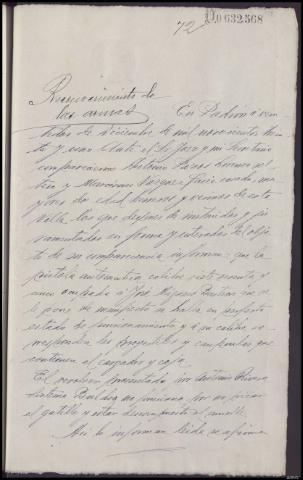 72
D0632,568
Reconocimiento de
las armas En Padrón a vein
tidos de diciembre de mil novecientos trein
ta y uno. Ante el Sr. Juez y mi Secretario
comparecieron Antonio sol
tero y Marcelino Vazquez casado, ma
yores de edad armeros y vecinos de esta
villa, los que despues de instruidos y ju
ramentados en forma y enterados del obje
to de su comparecencia informan: que la
pistola automatica calibre siete sesenta y
cinco ocupada a José que
se le pone de manifiesto se halla en perfecto
estado de funcionamiento y a su calibre co
rresponden los proyectiles y capsulas que
contienen el cargador y caja.
El revolver presentado por Antonio Rivera
sistema Bulldog no funciona por no picar
el gatillo y estar descompuesto el muelle.
Asi lo informan leida se afirma